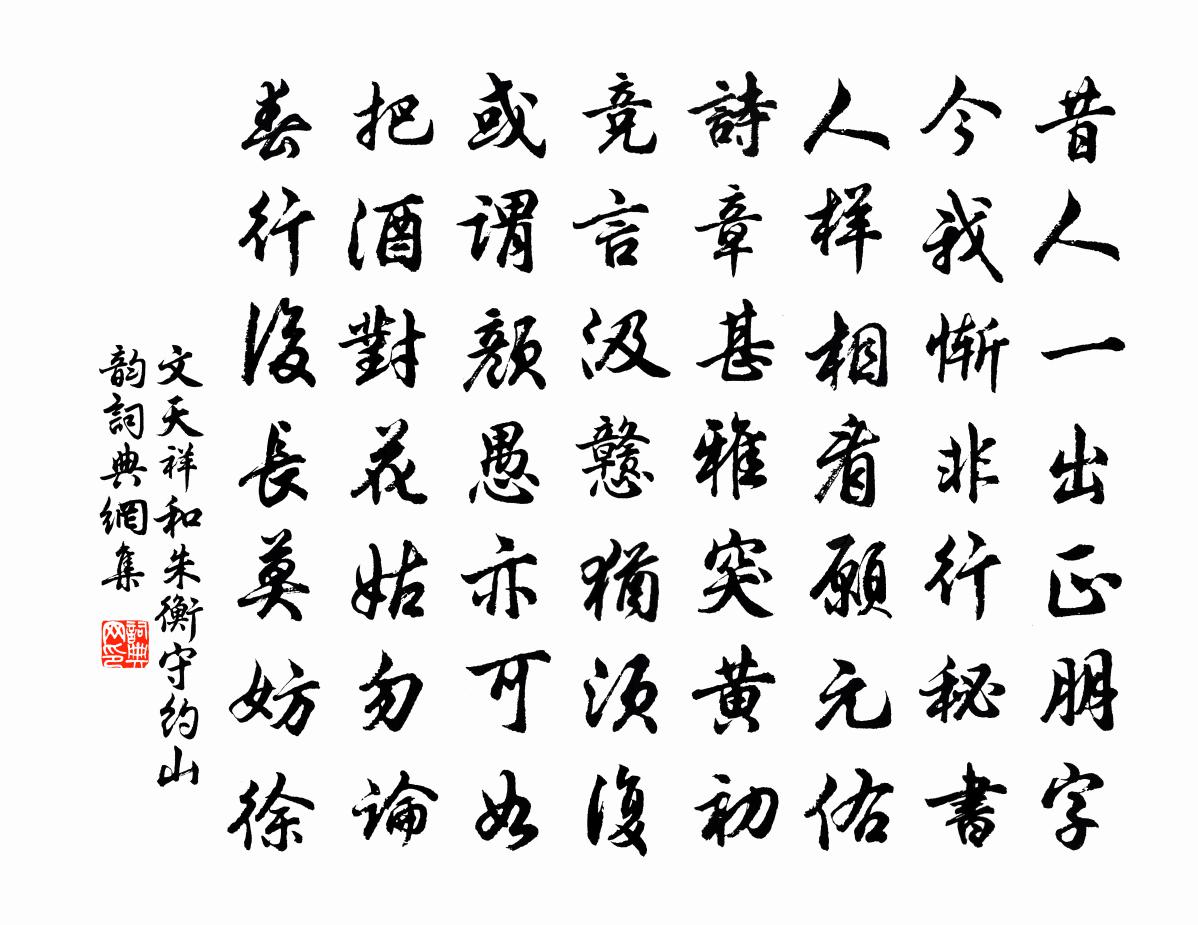 昔人一出正朋字
今我慚非行秘書
人样相看願元佑
詩章甚雅突黃初
竞言汲戇猶須復
或謂顏愚亦可如
把酒對花姑勿論
春行後長莫妨徐
文天祥和朱衡守約山
韵詞典網集
詞典网印